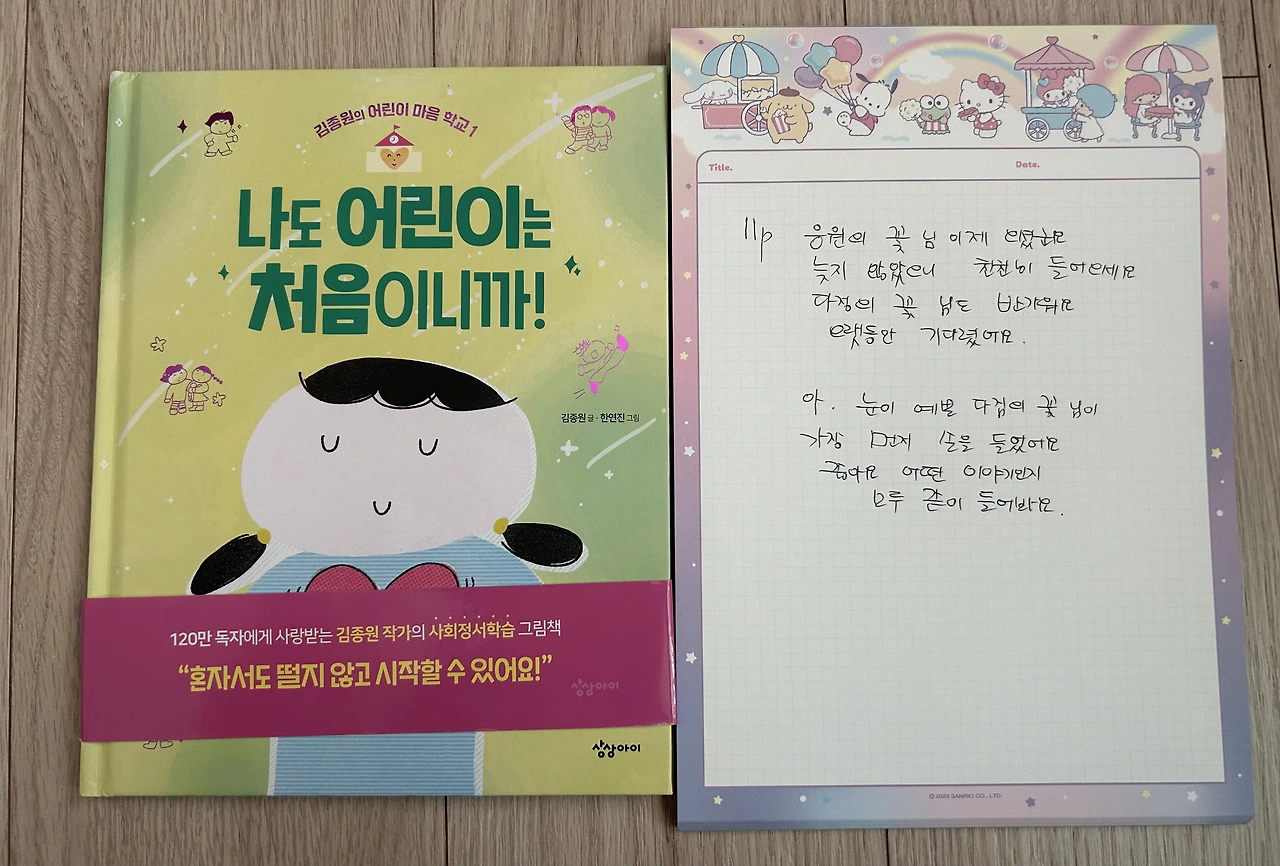 김종원의 어린이 마음 학교 1
나도 어린이는
처음이니까!
김종원 글 · 한연진 그림
120만 독자에게 사랑받는 김종원 작가의 사회정서학습 그림책
“혼자서도 떨지 않고 시작할 수 있어요!”
상상아이
상상아이
Title.
Date.
11p 응원의 꽃 님 이제 오셨군요
늦지 않았으니 천천히 들어오세요
다정의 꽃 님도 반가워요
오랫동안 기다렸어요.
아. 눈이 예쁜 다짐의 꽃 님이
가장 먼저 손을 들었어요
좋아요 어떤 이야기인지
모두 같이 들어봐요.
© 2023 SANRIO CO., LTD.